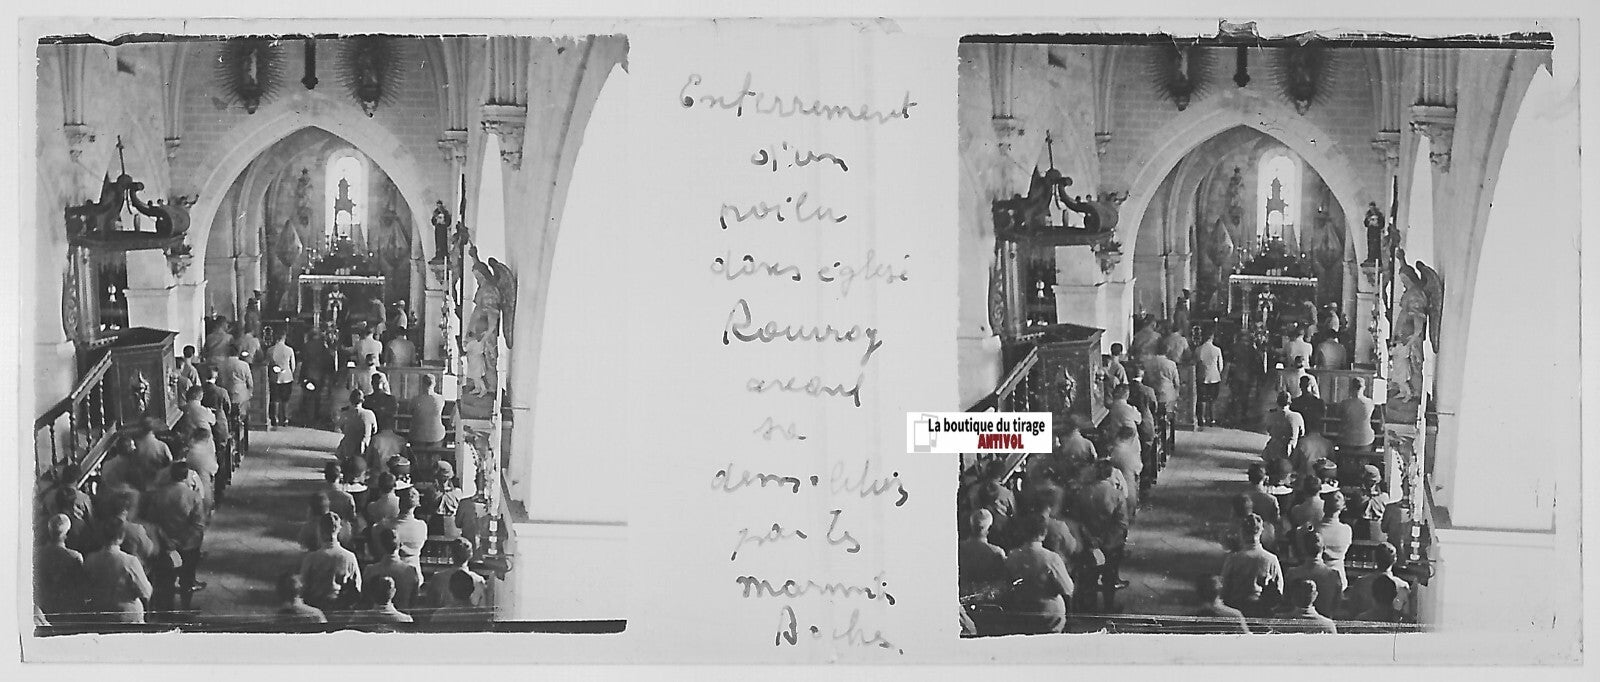 Enterrement
d'un
poilu
dans église
Rouvroy
avant
sa
demolition
par les
marmites
Boches.
La boutique du tirage
ANTIVOL